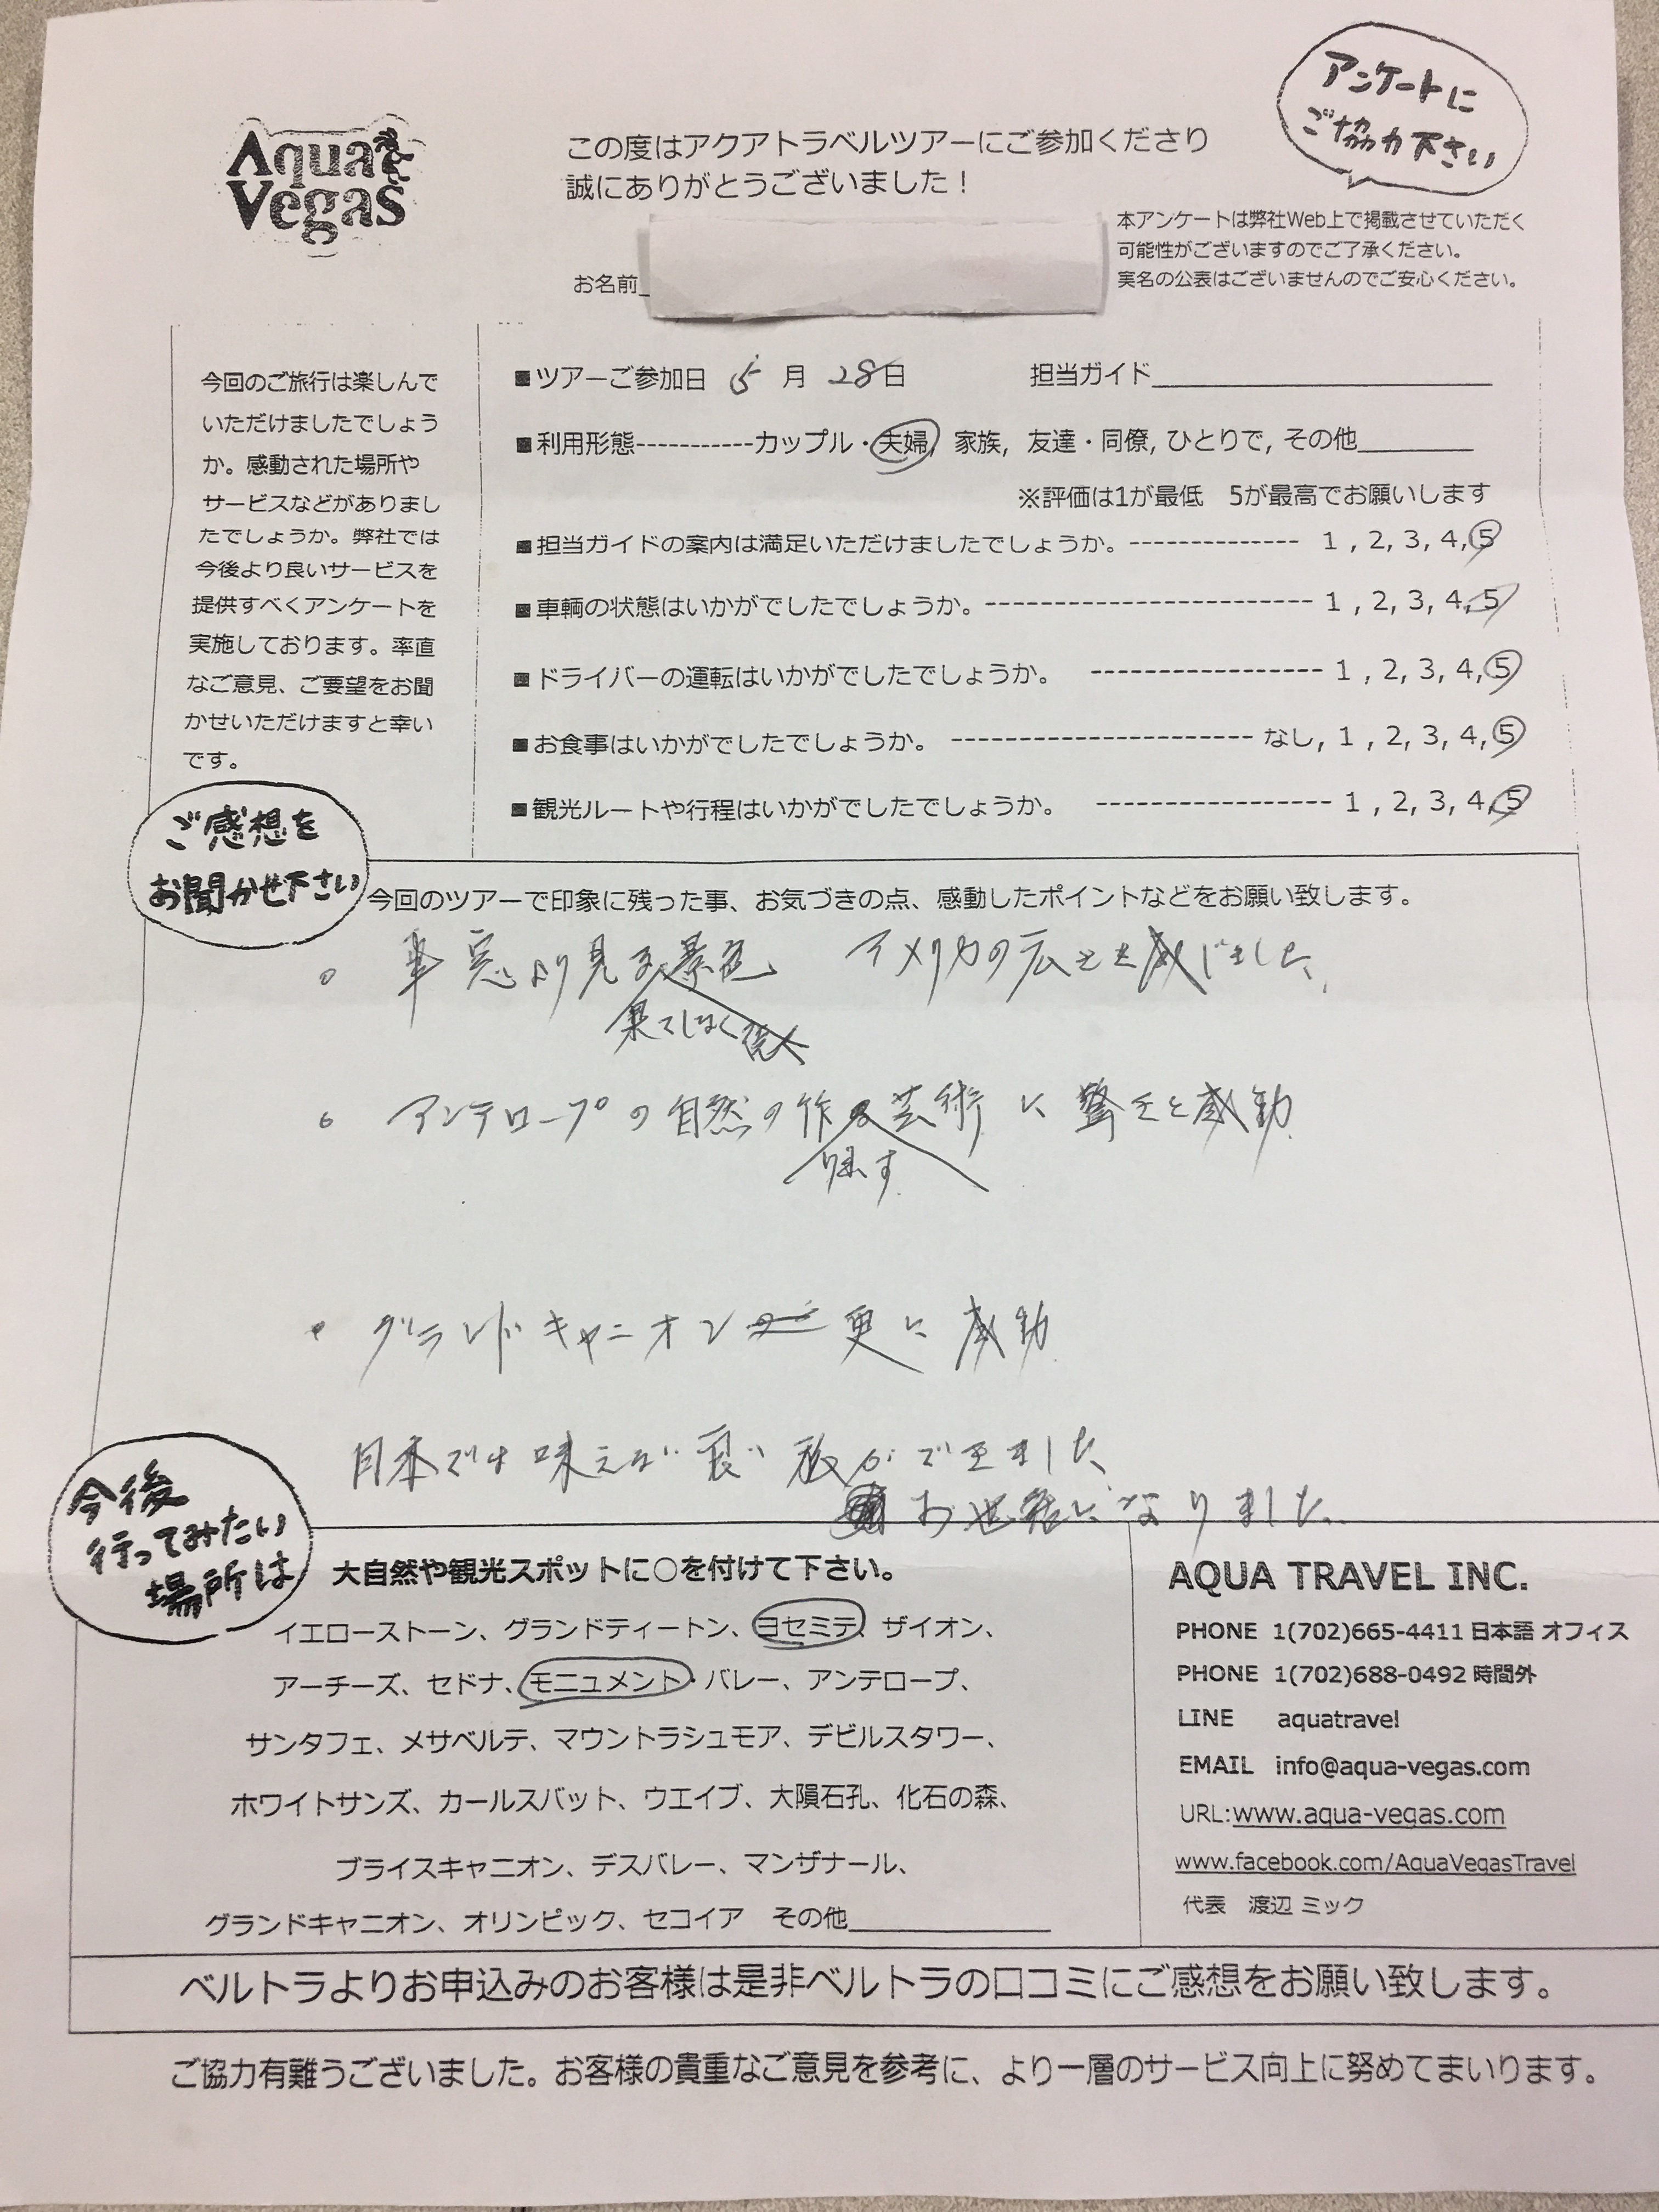 アンケートに
ご協力下さい
Aqua
Vegas
この度はアクアトラベルツアーにご参加くださり
誠にありがとうございました！
本アンケートは弊社Web上で掲載させていただく
可能性がございますのでご了承ください。
実名の公表はございませんのでご安心ください。
お名前
今回のご旅行は楽しんで
いただけましたでしょう
か。感動された場所や
サービスなどがありまし
たでしょうか。弊社では
今後より良いサービスを
提供すべくアンケートを
実施しております。率直
なご意見、ご要望をお聞
かせいただけますと幸い
です。
■ツアーご参加日 5月 28日 担当ガイド
■利用形態-----------カップル・夫婦, 家族, 友達・同僚, ひとりで, その他
※評価は1が最低 5が最高でお願いします
■担当ガイドの案内は満足いただけましたでしょうか。-------------- 1 , 2, 3, 4, 5
■車輌の状態はいかがでしたでしょうか。----------------------- 1 , 2, 3, 4, 5
■ドライバーの運転はいかがでしたでしょうか。 ----------------- 1 , 2, 3, 4, 5
■お食事はいかがでしたでしょうか。 ---------------------- なし, 1 , 2, 3, 4, 5
■観光ルートや行程はいかがでしたでしょうか。 ----------------- 1 , 2, 3, 4, 5
ご感想を
お聞かせ下さい
今回のツアーで印象に残った事、お気づきの点、感動したポイントなどをお願い致します。
。車窓より見る景色 アメリカの広さを感じました、
果てしなく広大
。アンテロープの自然の作る芸術に驚きと感動
り出す
・グランドキャニオン 更に感動
日本では味えない良い旅ができました
お世話になりました
今後
行ってみたい
場所は
大自然や観光スポットに○を付けて下さい。
イエローストーン、グランドティートン、ヨセミテ、ザイオン、
アーチーズ、セドナ、モニュメント・バレー、アンテロープ、
サンタフェ、メサベルテ、マウントラシュモア、デビルスタワー、
ホワイトサンズ、カールスバット、ウエイブ、大隕石孔、化石の森、
ブライスキャニオン、デスバレー、マンザナール、
グランドキャニオン、オリンピック、セコイア その他
AQUA TRAVEL INC.
PHONE 1(702)665-4411 日本語 オフィス
PHONE 1(702)688-0492 時間外
LINE aquatravel
EMAIL info@aqua-vegas.com
URL:www.aqua-vegas.com
www.facebook.com/AquaVegasTravel
代表 渡辺 ミック
ベルトラよりお申込みのお客様は是非ベルトラの口コミにご感想をお願い致します。
ご協力有難うございました。お客様の貴重なご意見を参考に、より一層のサービス向上に努めてまいります。